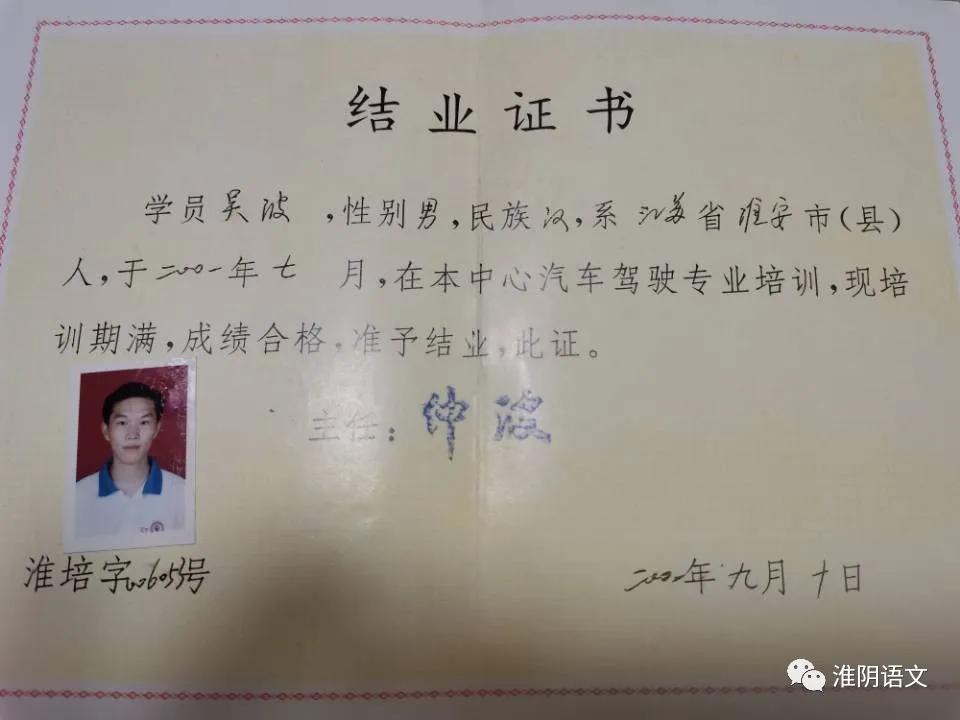 结业证书
学员吴波，性别男，民族汉，系江苏省淮安市（县）
人，于二〇〇一年七月，在本中心汽车驾驶专业培训，现培
训期满，成绩合格，准予结业，此证。
主任：仲波
淮培字006053号
二〇〇一年九月十日
淮阴语文